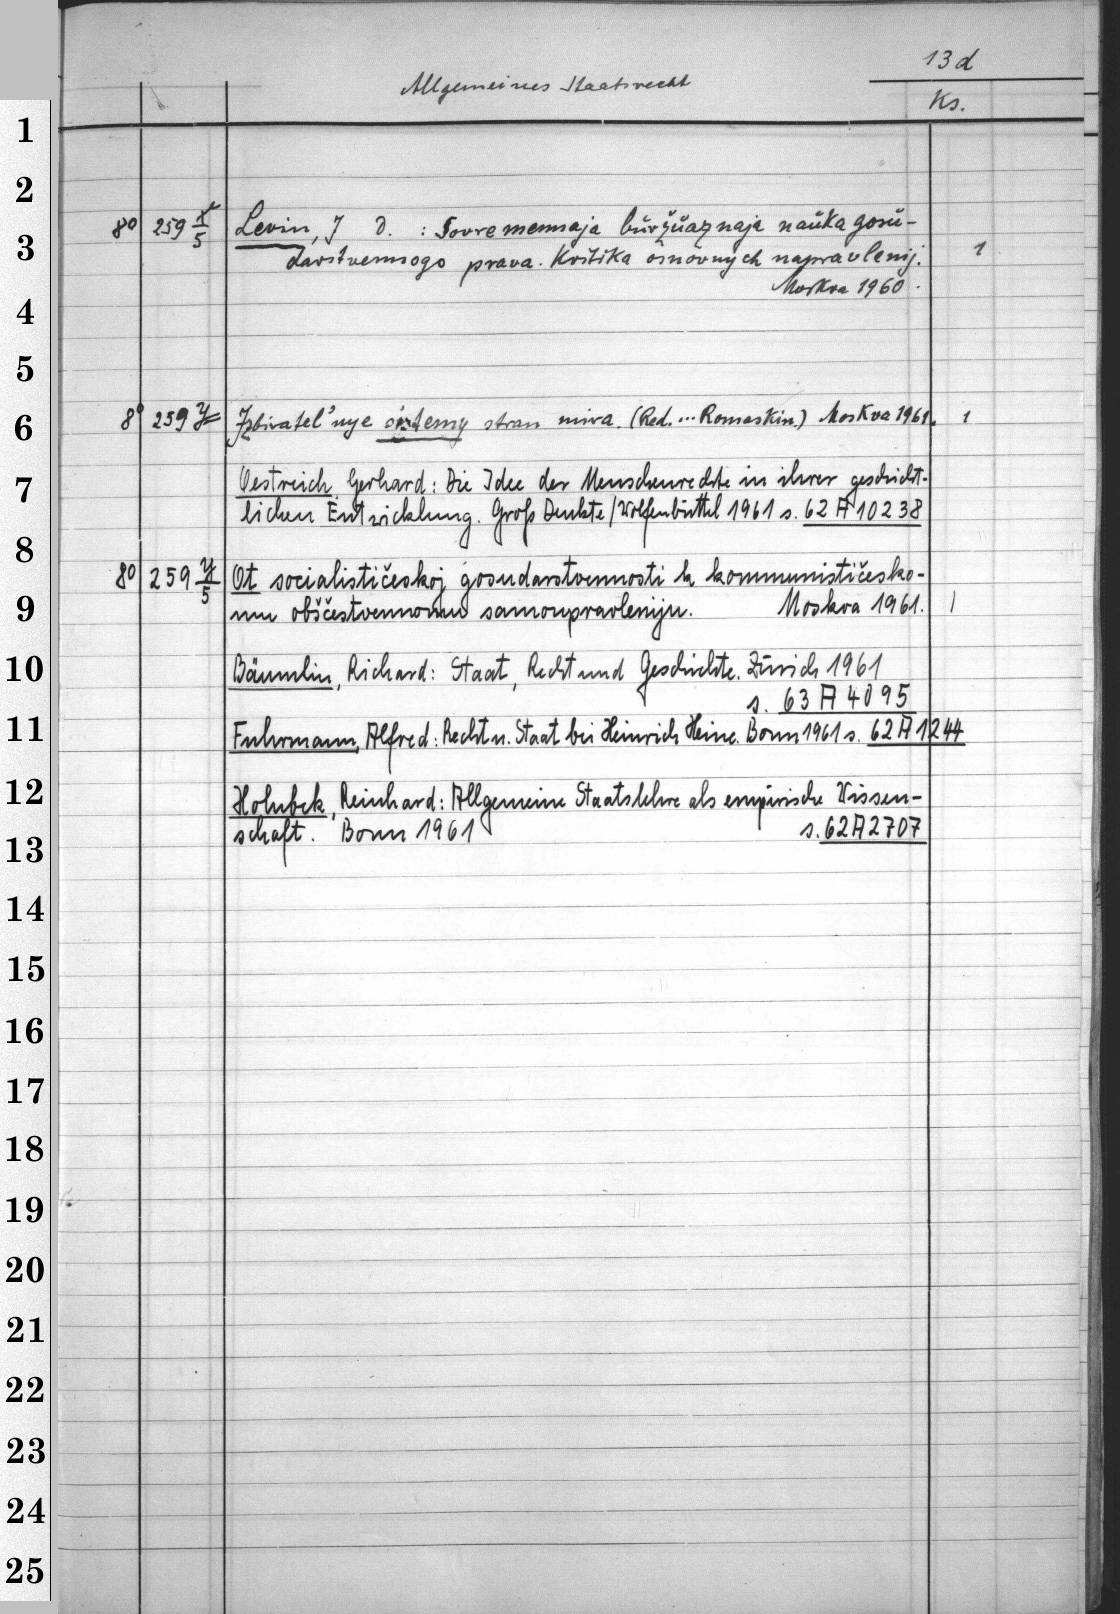 13d
Allgemeines Staatsrecht
Ks.
1
2
80 259 x/5 Levin, J D. : Sovremennaja bŭržŭaznaja naŭka gosŭ-
3
darstvennogo prava. Kritika osnovnych napravlenij. 1
Moskva 1960.
4
5
8° 259 y Izbiratel'nye sistemy stran mira. (Red. ... Romaskin.) Moskva 1961. 1
6
7
Oestreich, Gerhard: Die Idee der Menschenrechte in ihrer geschicht-
lichen Entwicklung. Groß Denkte/Wolfenbüttel 1961 s. 62 A 10238
8
80 259 y/5 Ot socialističeskoj gosudarstvennosti k kommunističesko-
9
mu obščestvennomu samoupravleniju. Moskva 1961. 1
10
Bäumlin, Richard: Staat, Recht und Geschichte. Zürich 1961
s. 63 A 4095
11
Fuhrmann, Alfred: Recht u. Staat bei Heinrich Heine. Bonn 1961 s. 62 A 1244
12
Holubek, Reinhard: Allgemeine Staatslehre als empirische Wissen-
schaft. Bonn 1961 s. 62 A 2707
13
14
15
16
17
18
19
20
21
22
23
24
25